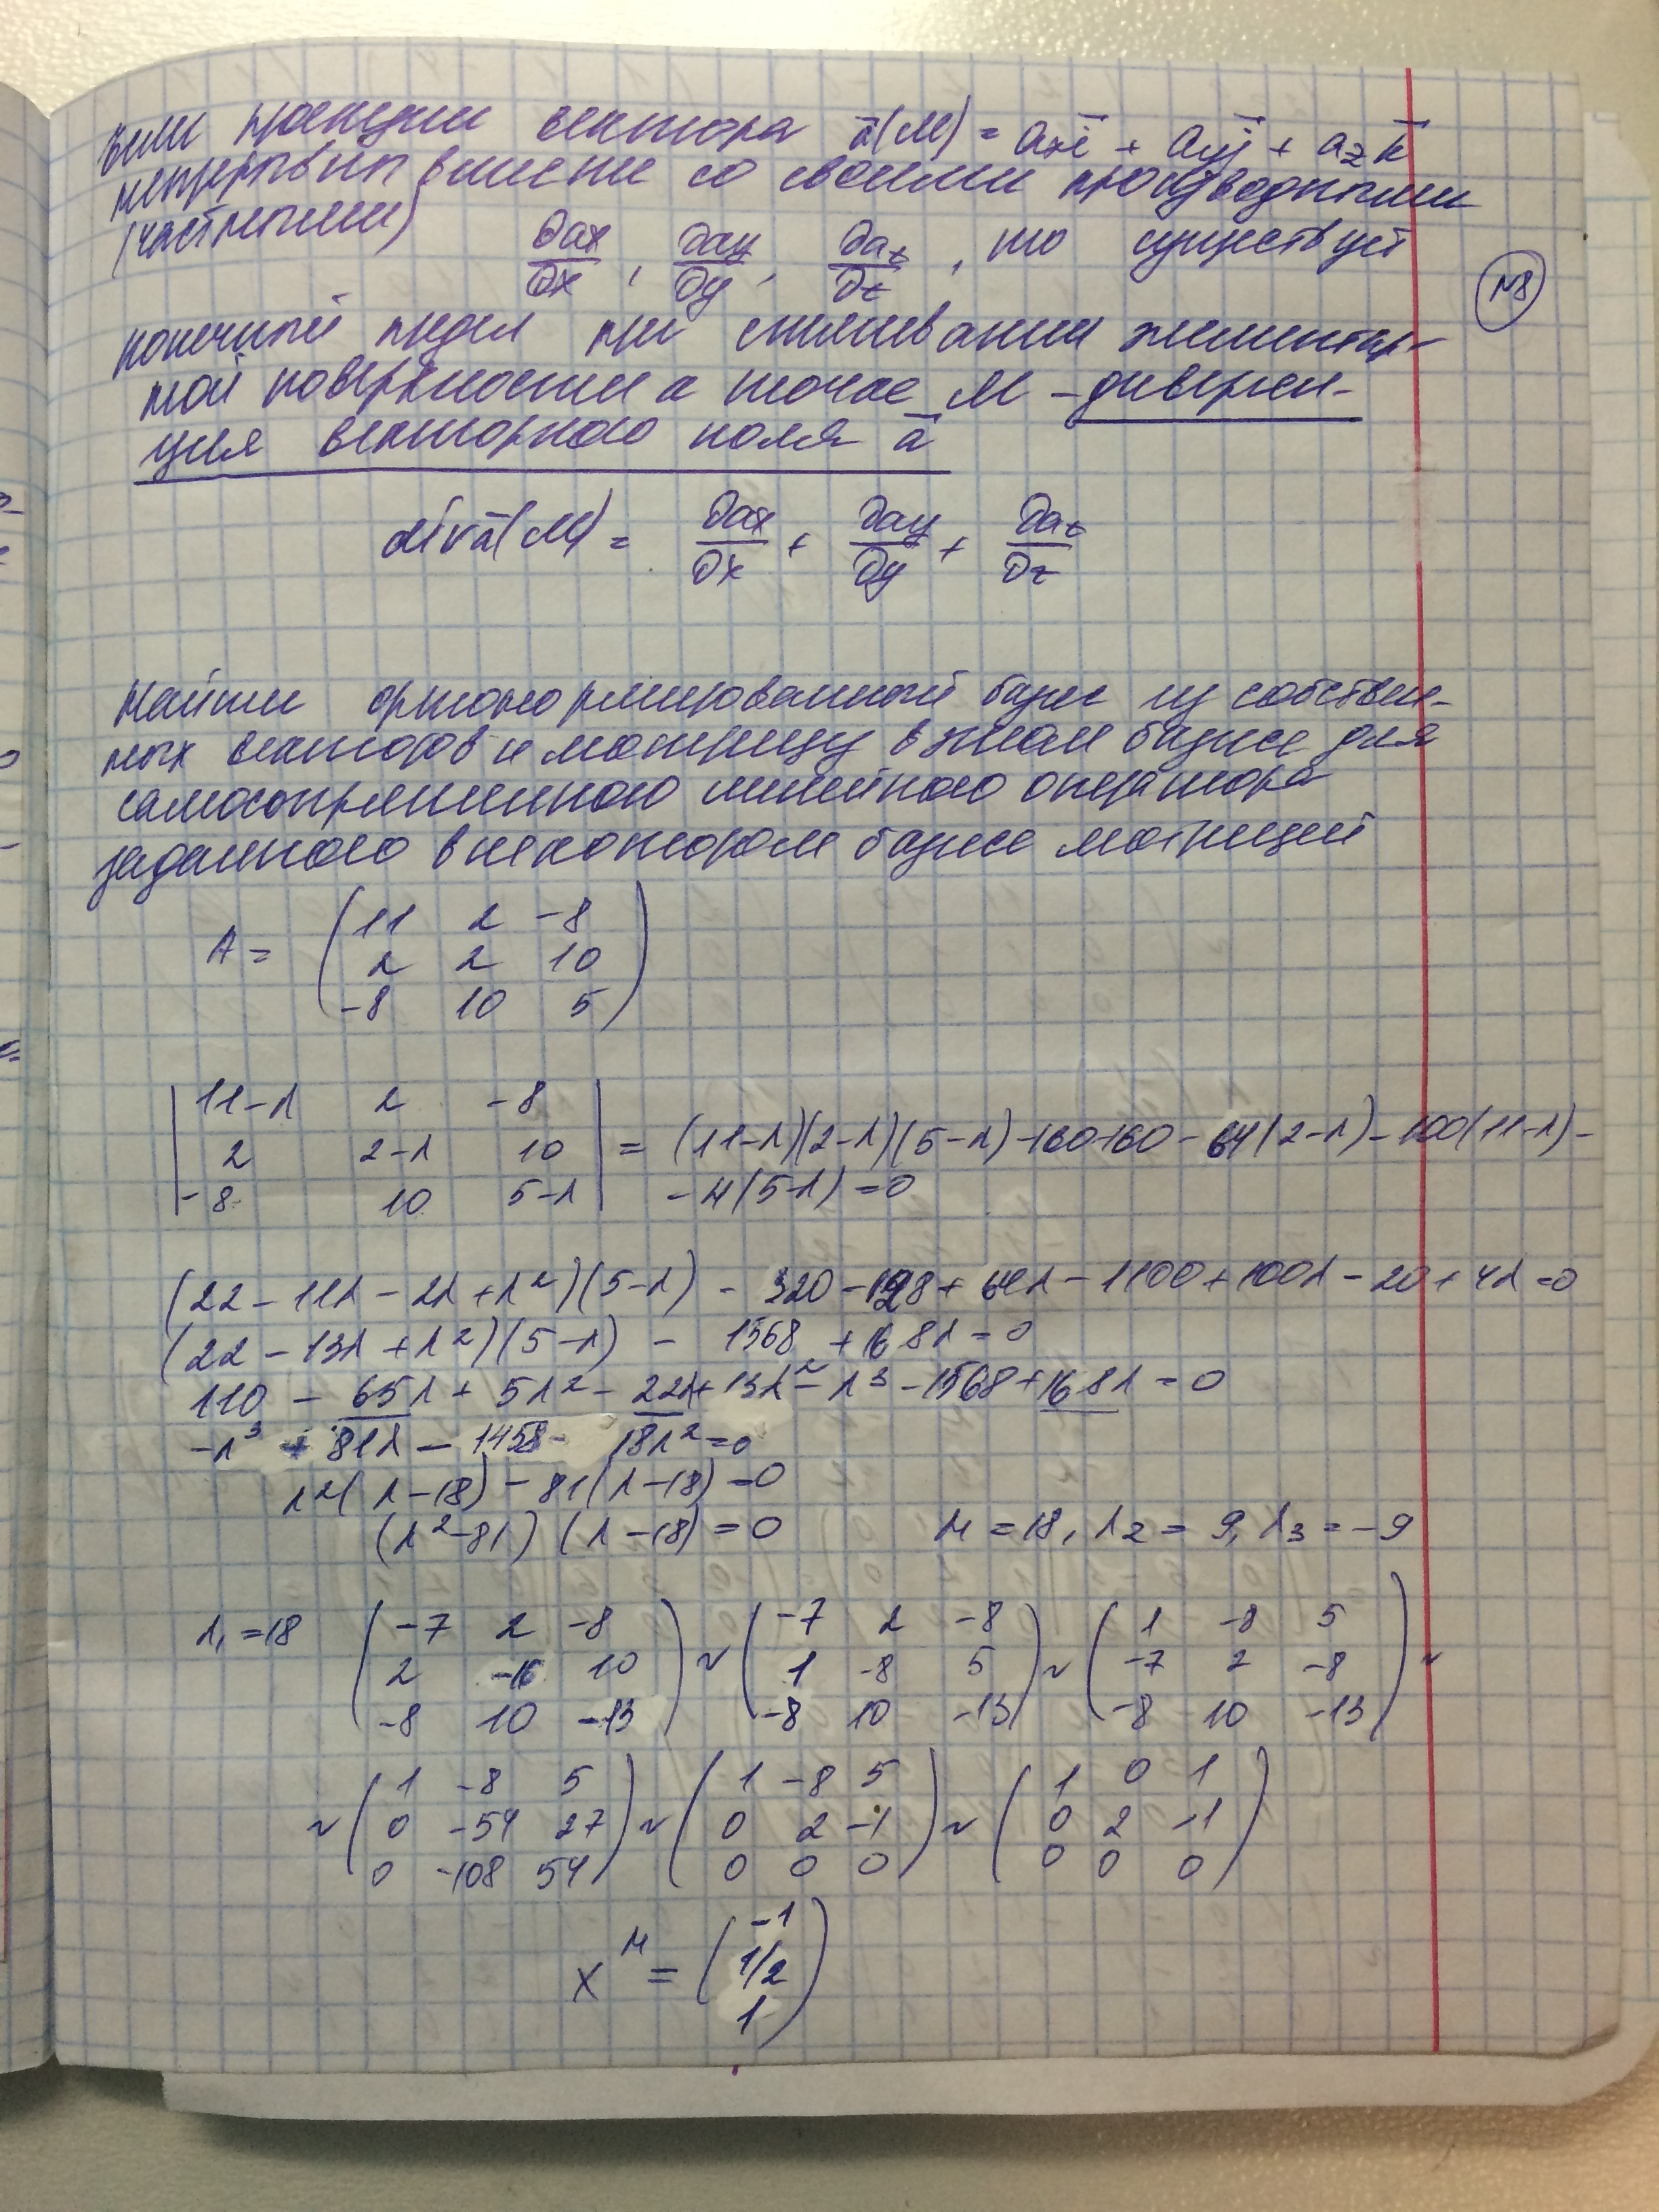 Если проекции вектора ā(M) = aₓī + a_y j̄ + a_z k̄
непрерывны вместе со своими производными
(частными) ∂aₓ/∂x , ∂a_y/∂y , ∂a_z/∂z , то существует
№8
конечный предел при стягивании элементар-
ной поверхности к точке M – диверген-
ция векторного поля ā
div ā(M) = ∂aₓ/∂x + ∂a_y/∂y + ∂a_z/∂z
Найти ортонормированный базис из собствен-
ных векторов и матрицу в этом базисе для
самосопряженного линейного оператора
заданного в некотором базисе матрицей
11 2 -8
A = 2 2 10
-8 10 5
11-λ 2 -8
2 2-λ 10 = (11-λ)(2-λ)(5-λ)-160-160-64(2-λ)-100(11-λ)-
-8 10 5-λ -4(5-λ)=0
(22-11λ-2λ+λ²)(5-λ) - 320-128+64λ-1100+100λ-20+4λ=0
(22-13λ+λ²)(5-λ) - 1568 +168λ=0
110 - 65λ + 5λ² - 22λ+13λ²-λ³-1568+168λ=0
-λ³ + 81λ - 1458 18λ²=0
λ²(λ-18)-81(λ-18)=0
(λ²-81)(λ-18)=0 λ₁=18, λ₂=9, λ₃=-9
λ₁=18 (-7 2 -8) (-7 2 -8) (1 -8 5)
(2 -16 10) ~ (1 -8 5) ~ (-7 2 -8) ~
(-8 10 -13) (-8 10 -13) (-8 10 -13)
(1 -8 5) (1 -8 5) (1 0 1)
~ (0 -54 27) ~ (0 2 -1) ~ (0 2 -1)
(0 -108 54) (0 0 0) (0 0 0)
-1
x^λ₁ = 1/2
1